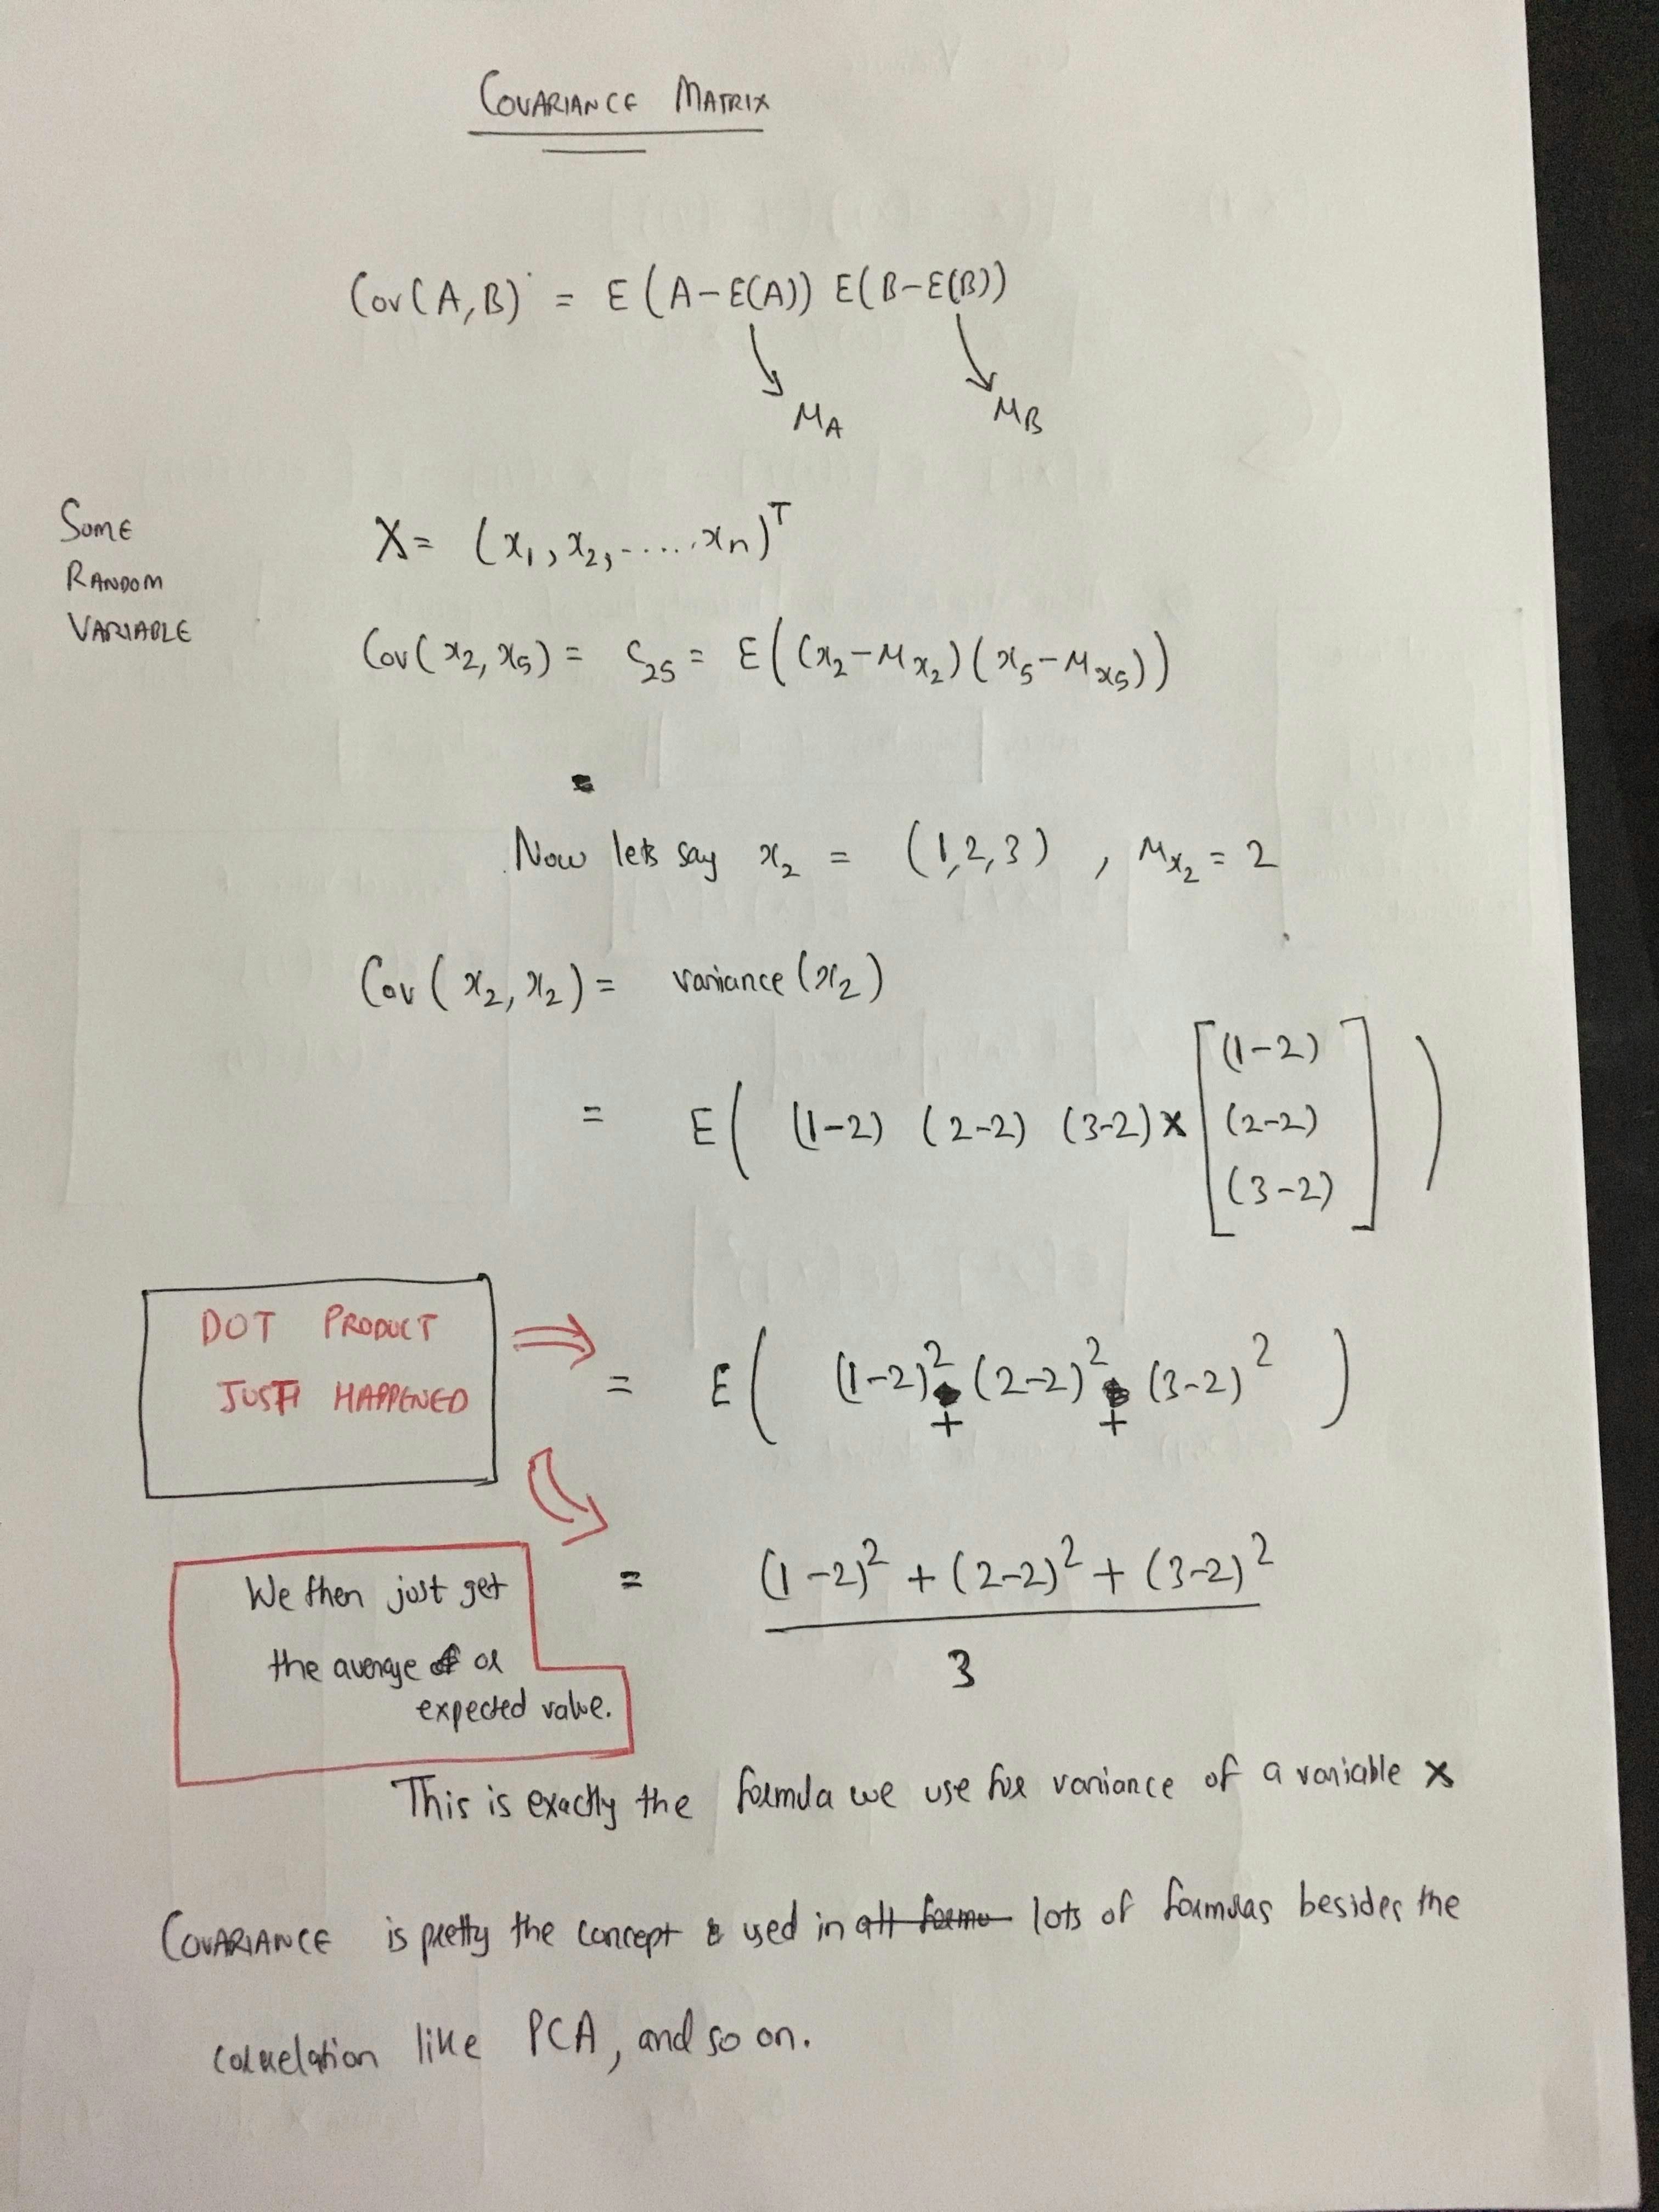 COVARIANCE MATRIX
Cov(A,B) = E(A-E(A)) E(B-E(B))
μA μB
SOME
RANDOM
VARIABLE
X = (x₁, x₂, ...... xn)ᵀ
Cov(x₂, x₅) = S₂₅ = E((x₂-μx₂)(x₅-μx₅))
Now lets say x₂ = (1,2,3) , μx₂ = 2
Cov(x₂, x₂) = variance(x₂)
= E( (1-2) (2-2) (3-2) × [(1-2)
(2-2)
(3-2)] )
DOT PRODUCT
JUST HAPPENED
= E( (1-2)² + (2-2)² + (3-2)² )
We then just get
the average or
expected value.
= (1-2)² + (2-2)² + (3-2)²
3
This is exactly the formula we use for variance of a variable x
COVARIANCE is pretty the concept used in all formu lots of formulas besides the
correlation like PCA, and so on.